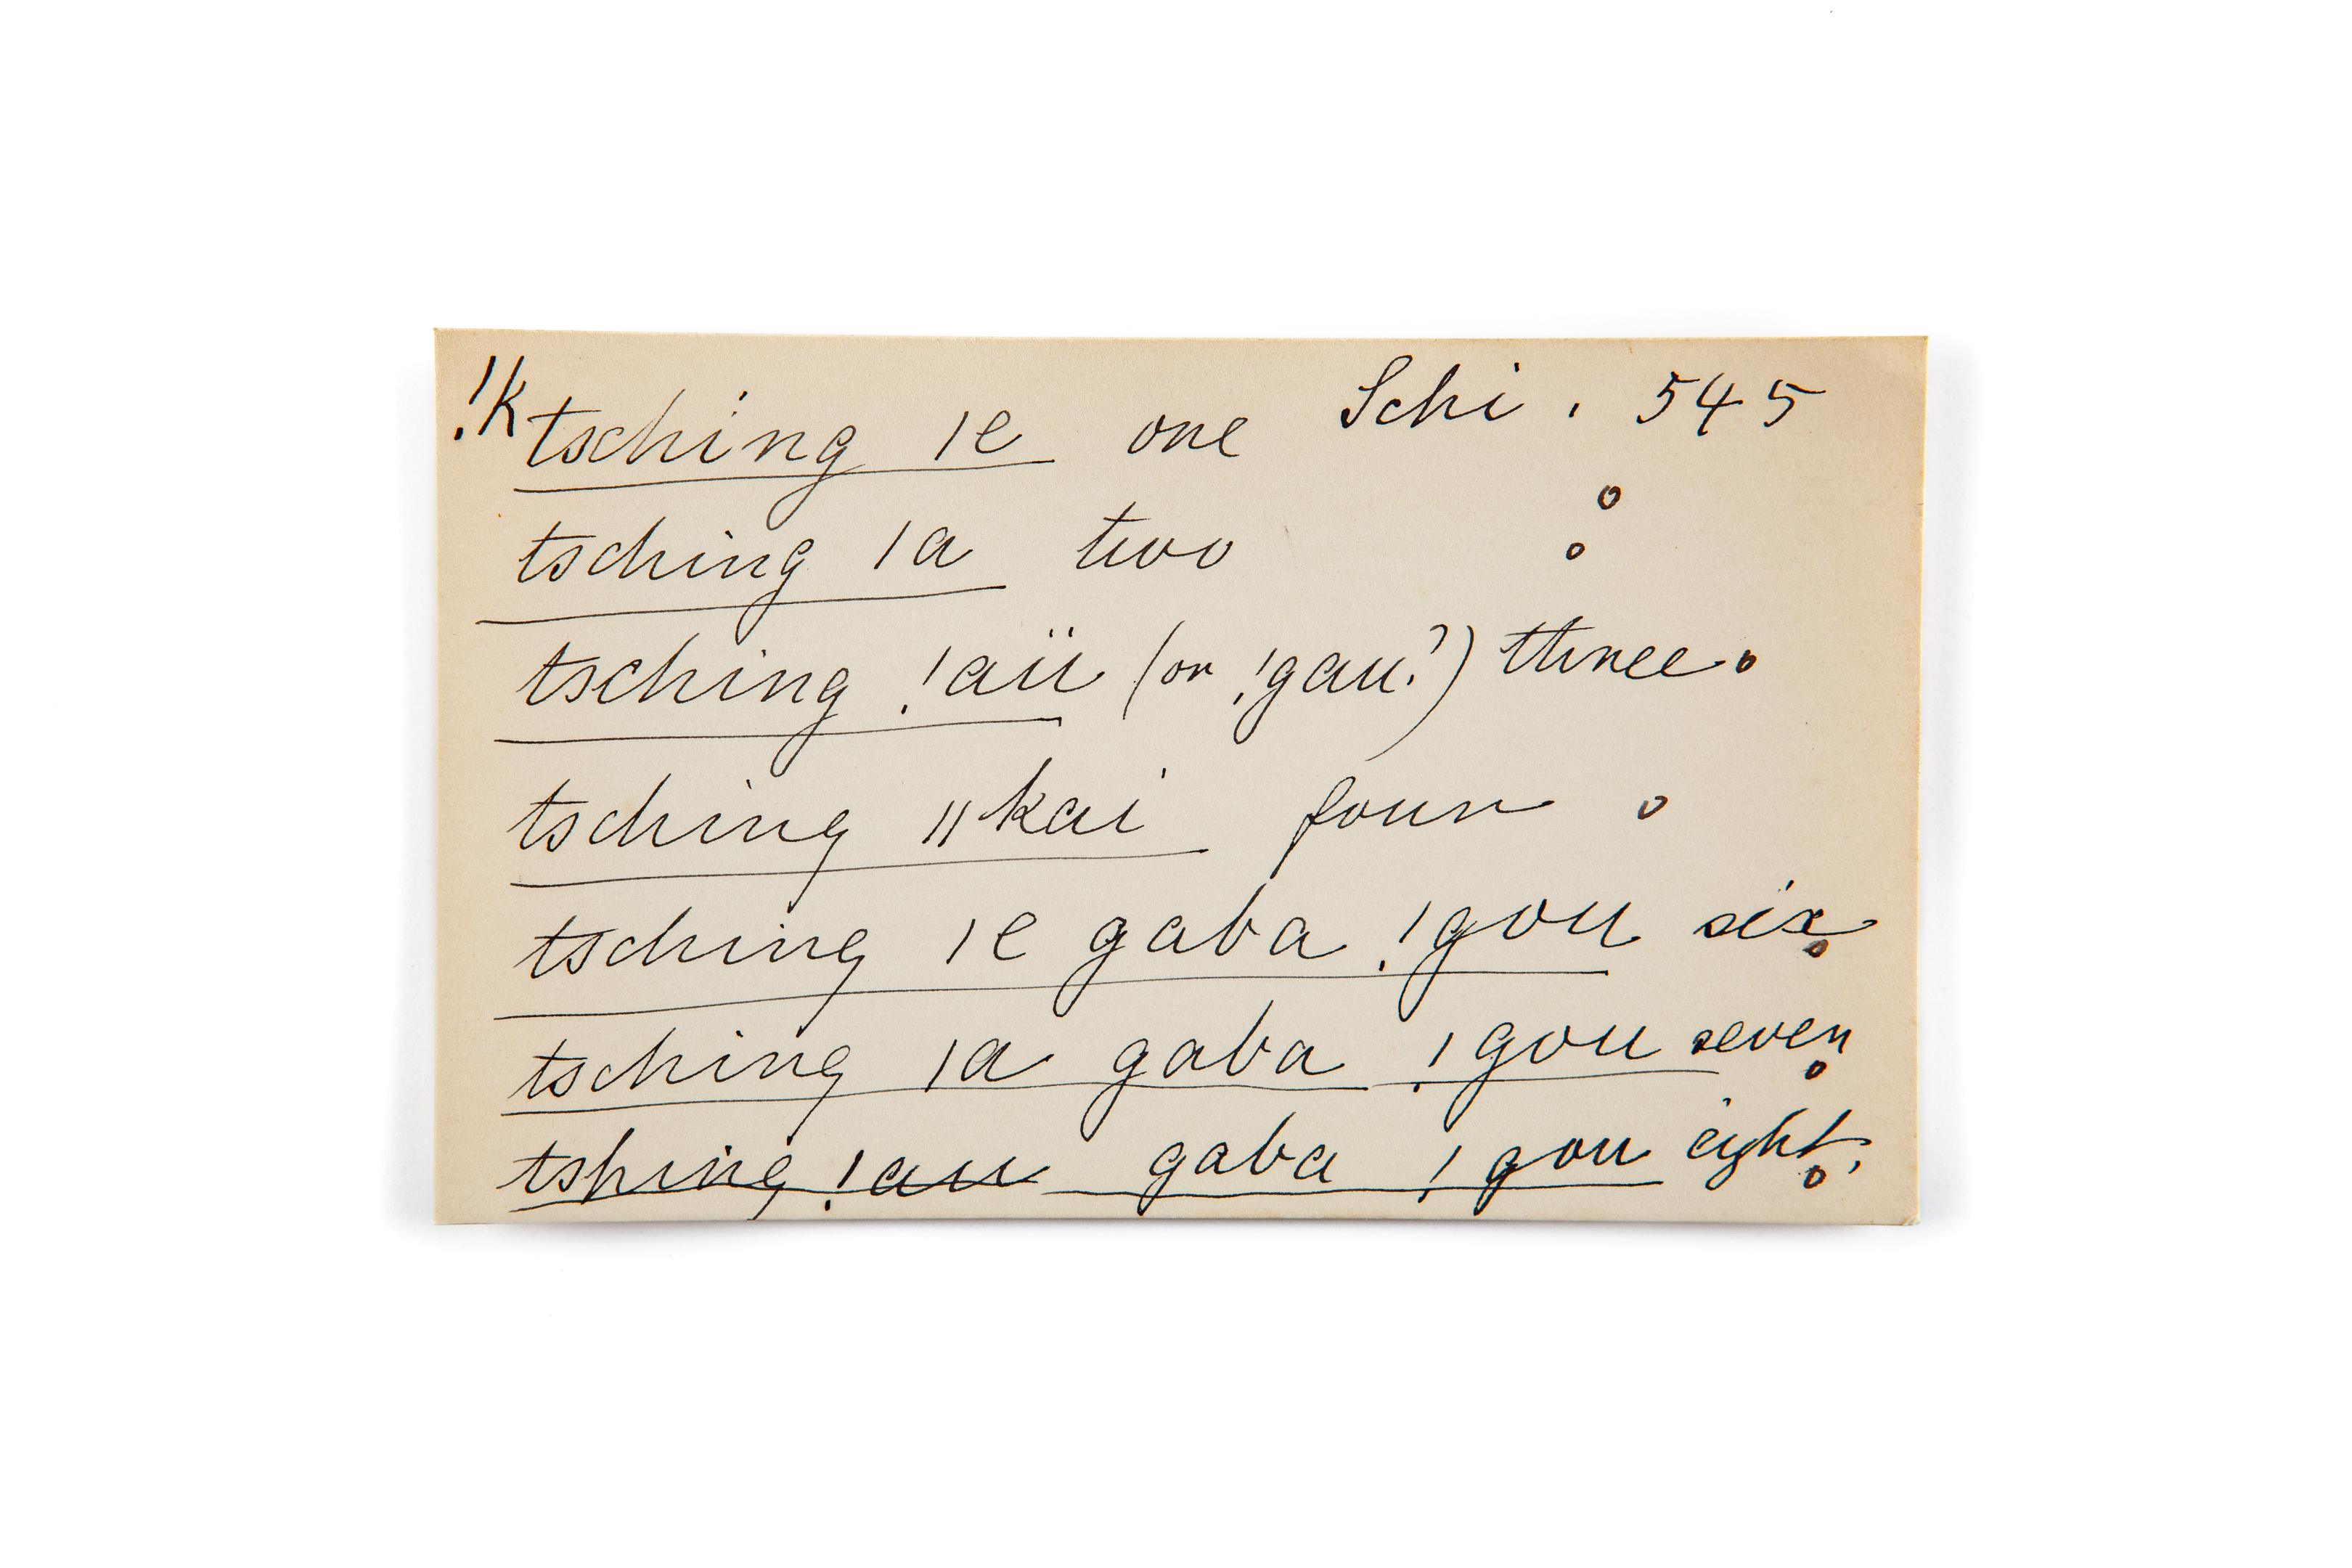 !k tsching |e one Schi. 545
tsching |a two
tsching !aü (or !gau?) three.
tsching ||kai four
tsching |e gaba !gou six
tsching |a gaba !gou seven
tshing !au gaba !gou eight.